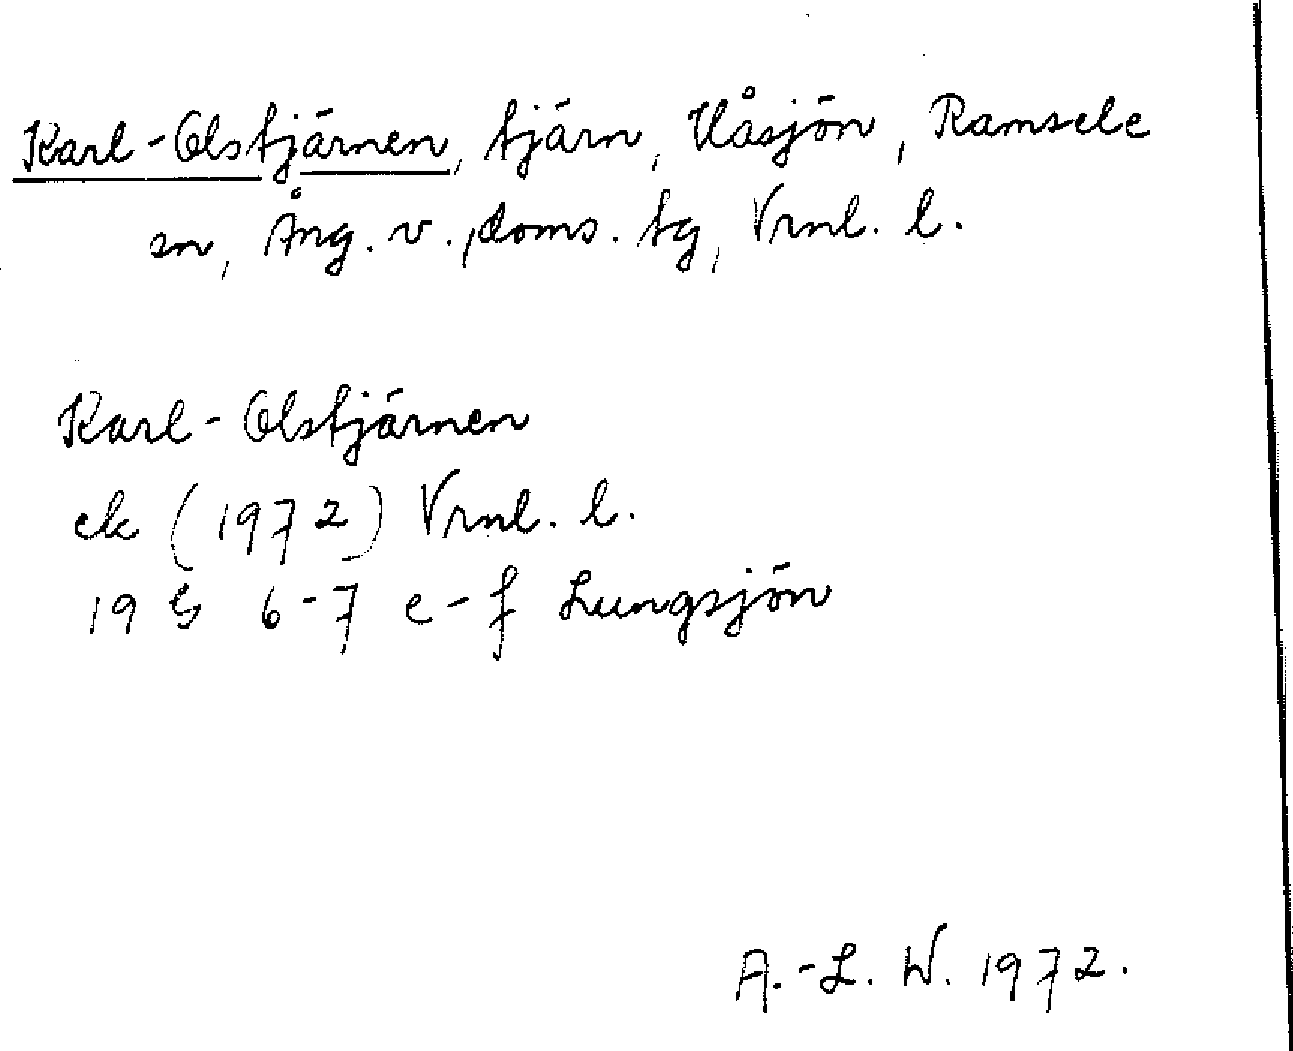 Karl-Olstjärnen, tjärn, Våsjön, Ramsele
sn, Ång. v., doms. tg, Vrnl. l.
Karl-Olstjärnen
ek (1972) Vrnl. l.
19 G 6-7 e-f Lungsjön
A.-L. W. 1972.